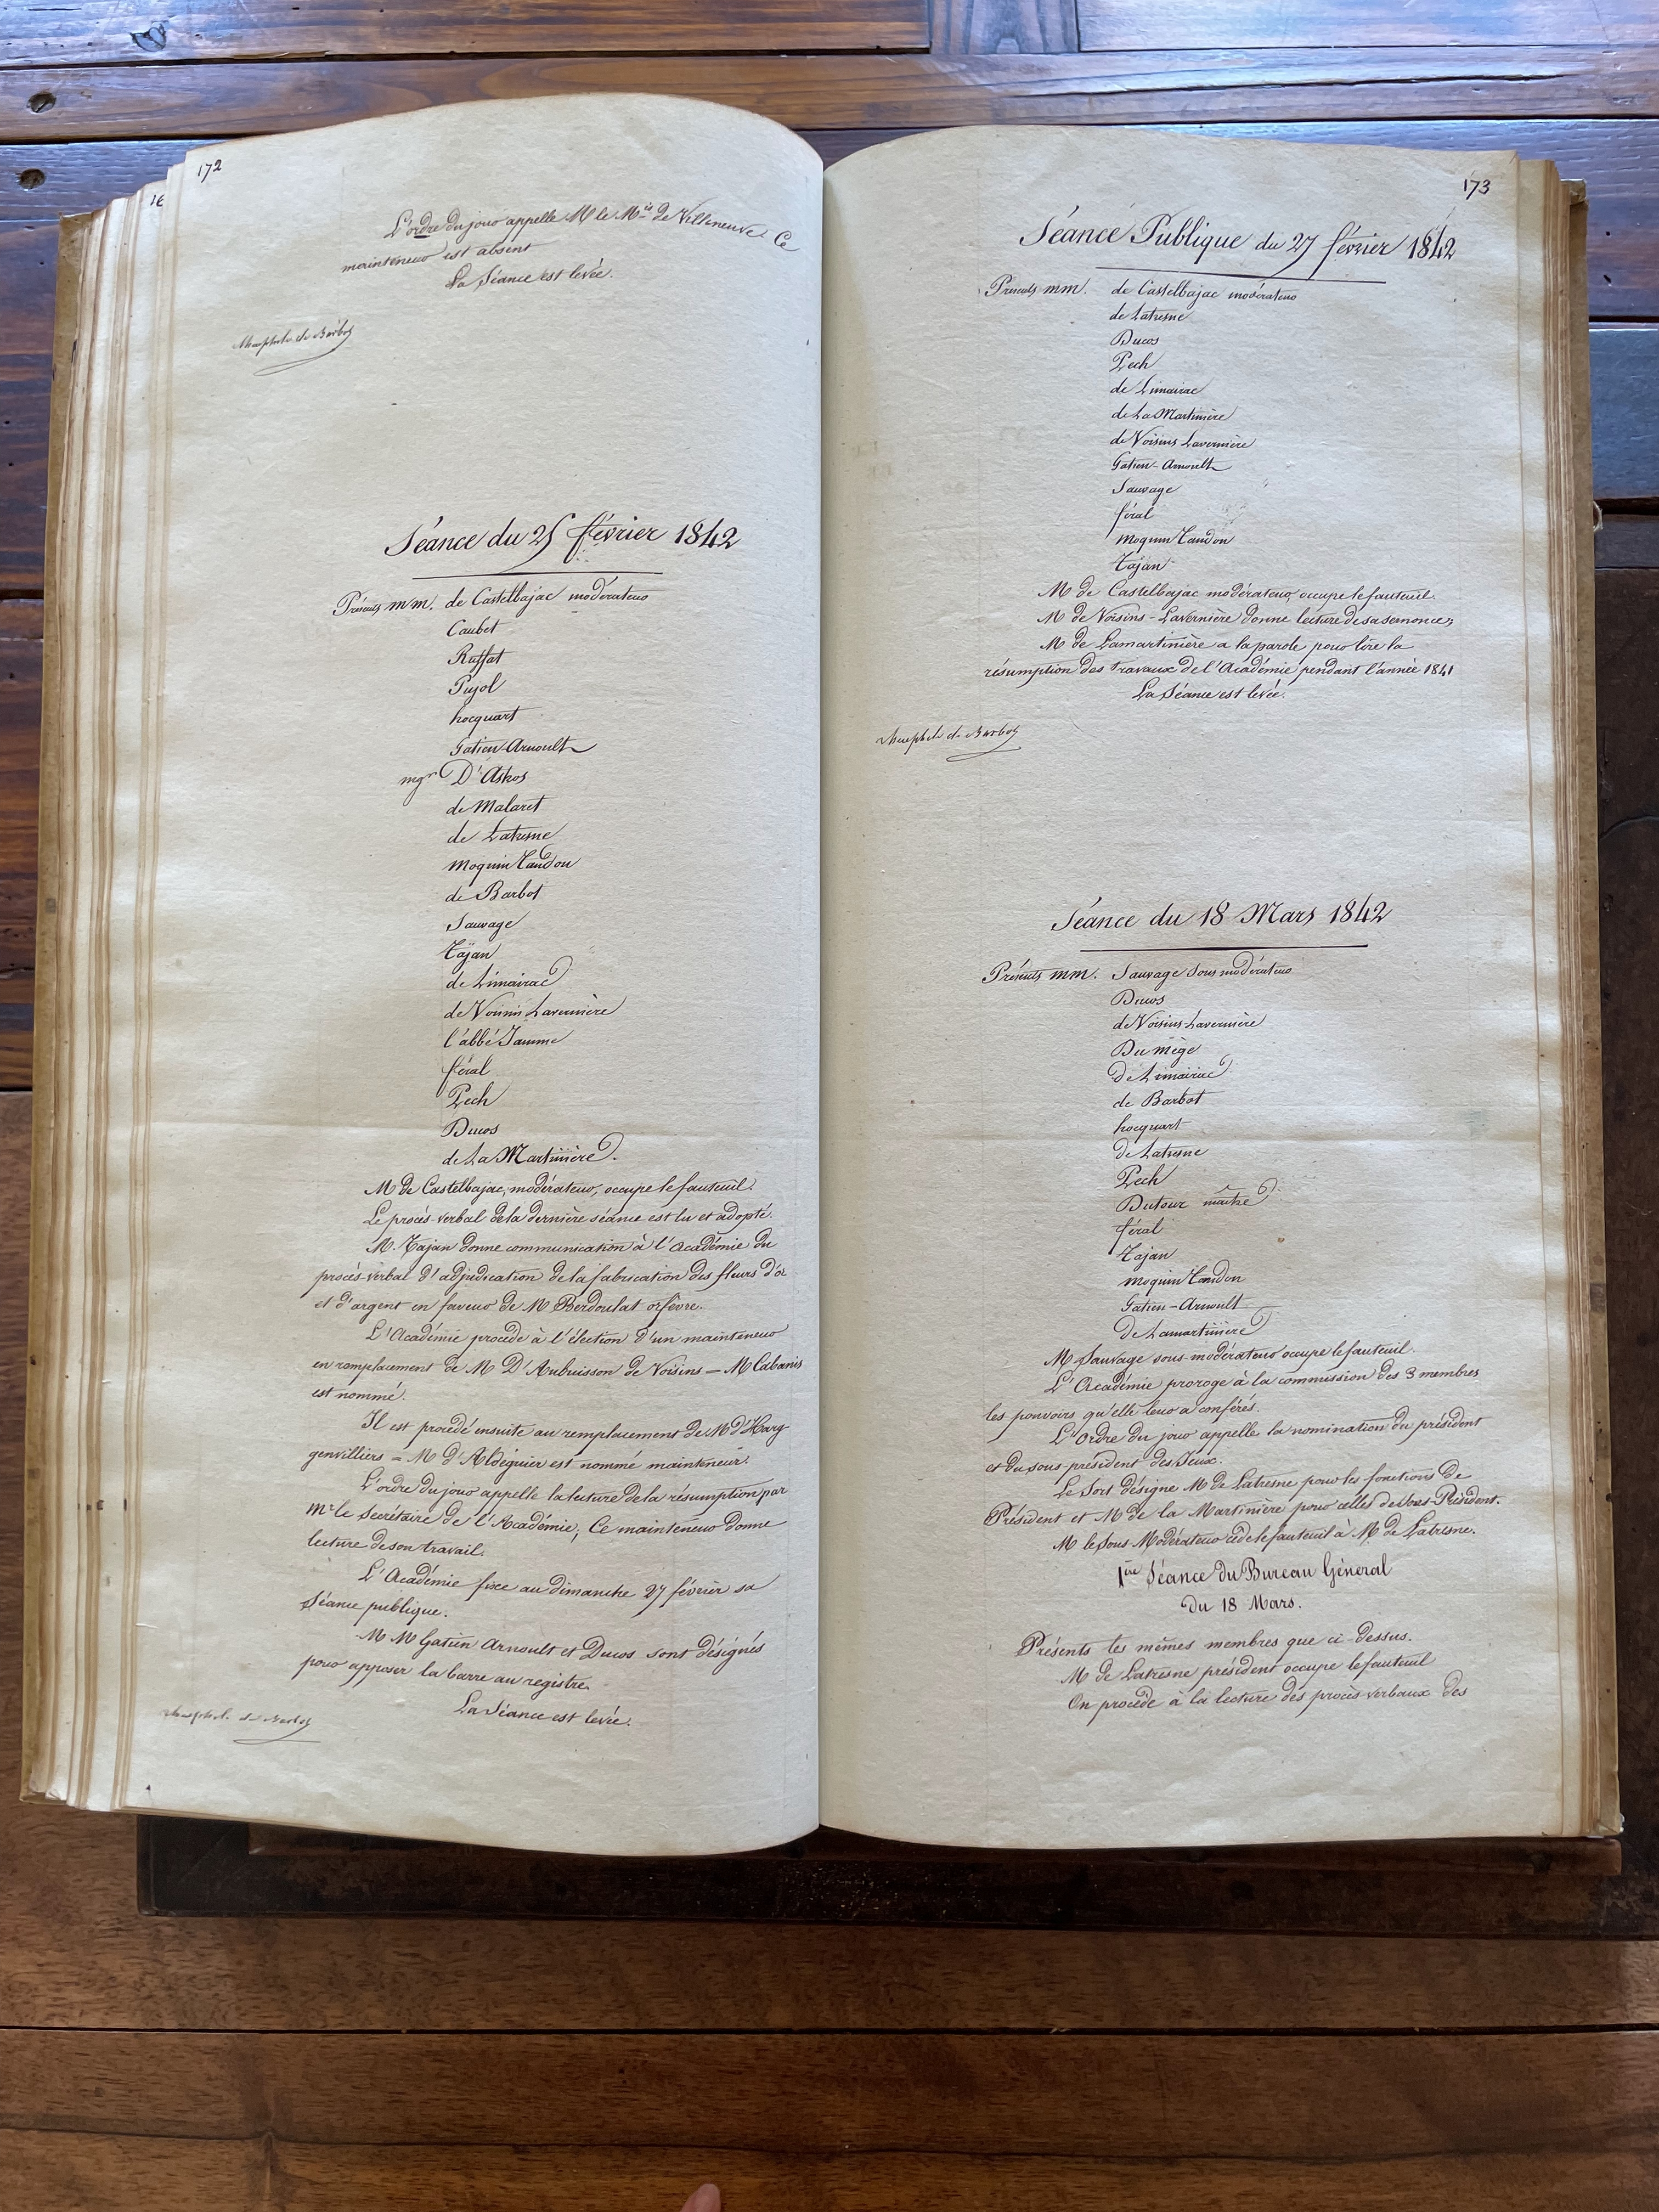 172
16
L'ordre du jour appelle M le Mis de Villeneuve. Ce
mainteneur est absent
La Séance est levée.
de Barbot
Séance du 25 février 1842
Présents mm. de Castelbajac modérateur
Caubet
Raffat
Pujol
hocquart
Gatien-Arnoult
mgr D'Astros
de Malaret
de Latresne
Moquin Tandon
de Barbot
Sauvage
Tajan
de Limairac
de Voisins Lavernière
l'abbé Jamme
féral
Pech
Ducos
de La Martinière.
M de Castelbajac, modérateur, occupe le fauteuil.
Le procès-verbal de la dernière séance est lu et adopté.
M. Tajan donne communication à l'Académie du
procès-verbal d'adjudication de la fabrication des fleurs d'or
et d'argent en faveur de M Berdoulat orfèvre.
L'Académie procède à l'élection d'un mainteneur
en remplacement de M D'Aubuisson de Voisins = M Cabanis
est nommé.
Il est procédé ensuite au remplacement de M d'Harg
genvilliers = M d'Aldéguier est nommé mainteneur.
L'ordre du jour appelle la lecture de la résumption par
Mr le Secrétaire de l'Académie; Ce mainteneur donne
lecture de son travail.
L'Académie fixe au dimanche 27 février sa
Séance publique.
M M Gatien Arnoult et Ducos sont désignés
pour apposer la barre au registre.
La Séance est levée.
de Barbot
173
Séance Publique du 27 février 1842
Présents mm. de Castelbajac modérateur
de Latresne
Ducos
Pech
de Limairac
de La Martinière
de Voisins Lavernière
Gatien-Arnoult
Sauvage
féral
Moquin Tandon
Tajan
M de Castelbajac modérateur, occupe le fauteuil.
M de Voisins-Lavernière donne lecture de sa semonce;
M de Lamartinière a la parole pour lire la
résumption des travaux de l'Académie pendant l'année 1841
La Séance est levée.
de Barbot
Séance du 18 Mars 1842
Présents mm. Sauvage Sous modérateur
Ducos
de Voisins Lavernière
Du mège
de Limairac
de Barbot
hocquart
de Latresne
Pech
Dutour maître
féral
Tajan
Moquin Tandon
Gatien-Arnoult
de Lamartinière
M Sauvage sous-modérateur occupe le fauteuil.
L'Académie proroge à la commission des 3 membres
les pouvoirs qu'elle leur a conférés.
L'Ordre du jour appelle la nomination du président
et du sous-président des Jeux.
Le Sort désigne M de Latresne pour les fonctions de
Président et M de la Martinière pour celles de Sous-Président.
M le Sous-Modérateur cède le fauteuil à M. de Latresne.
1ère Séance du Bureau Général
du 18 Mars.
Présents les mêmes membres que ci-dessus.
M de Latresne président occupe le fauteuil
On procède à la lecture des procès-verbaux des